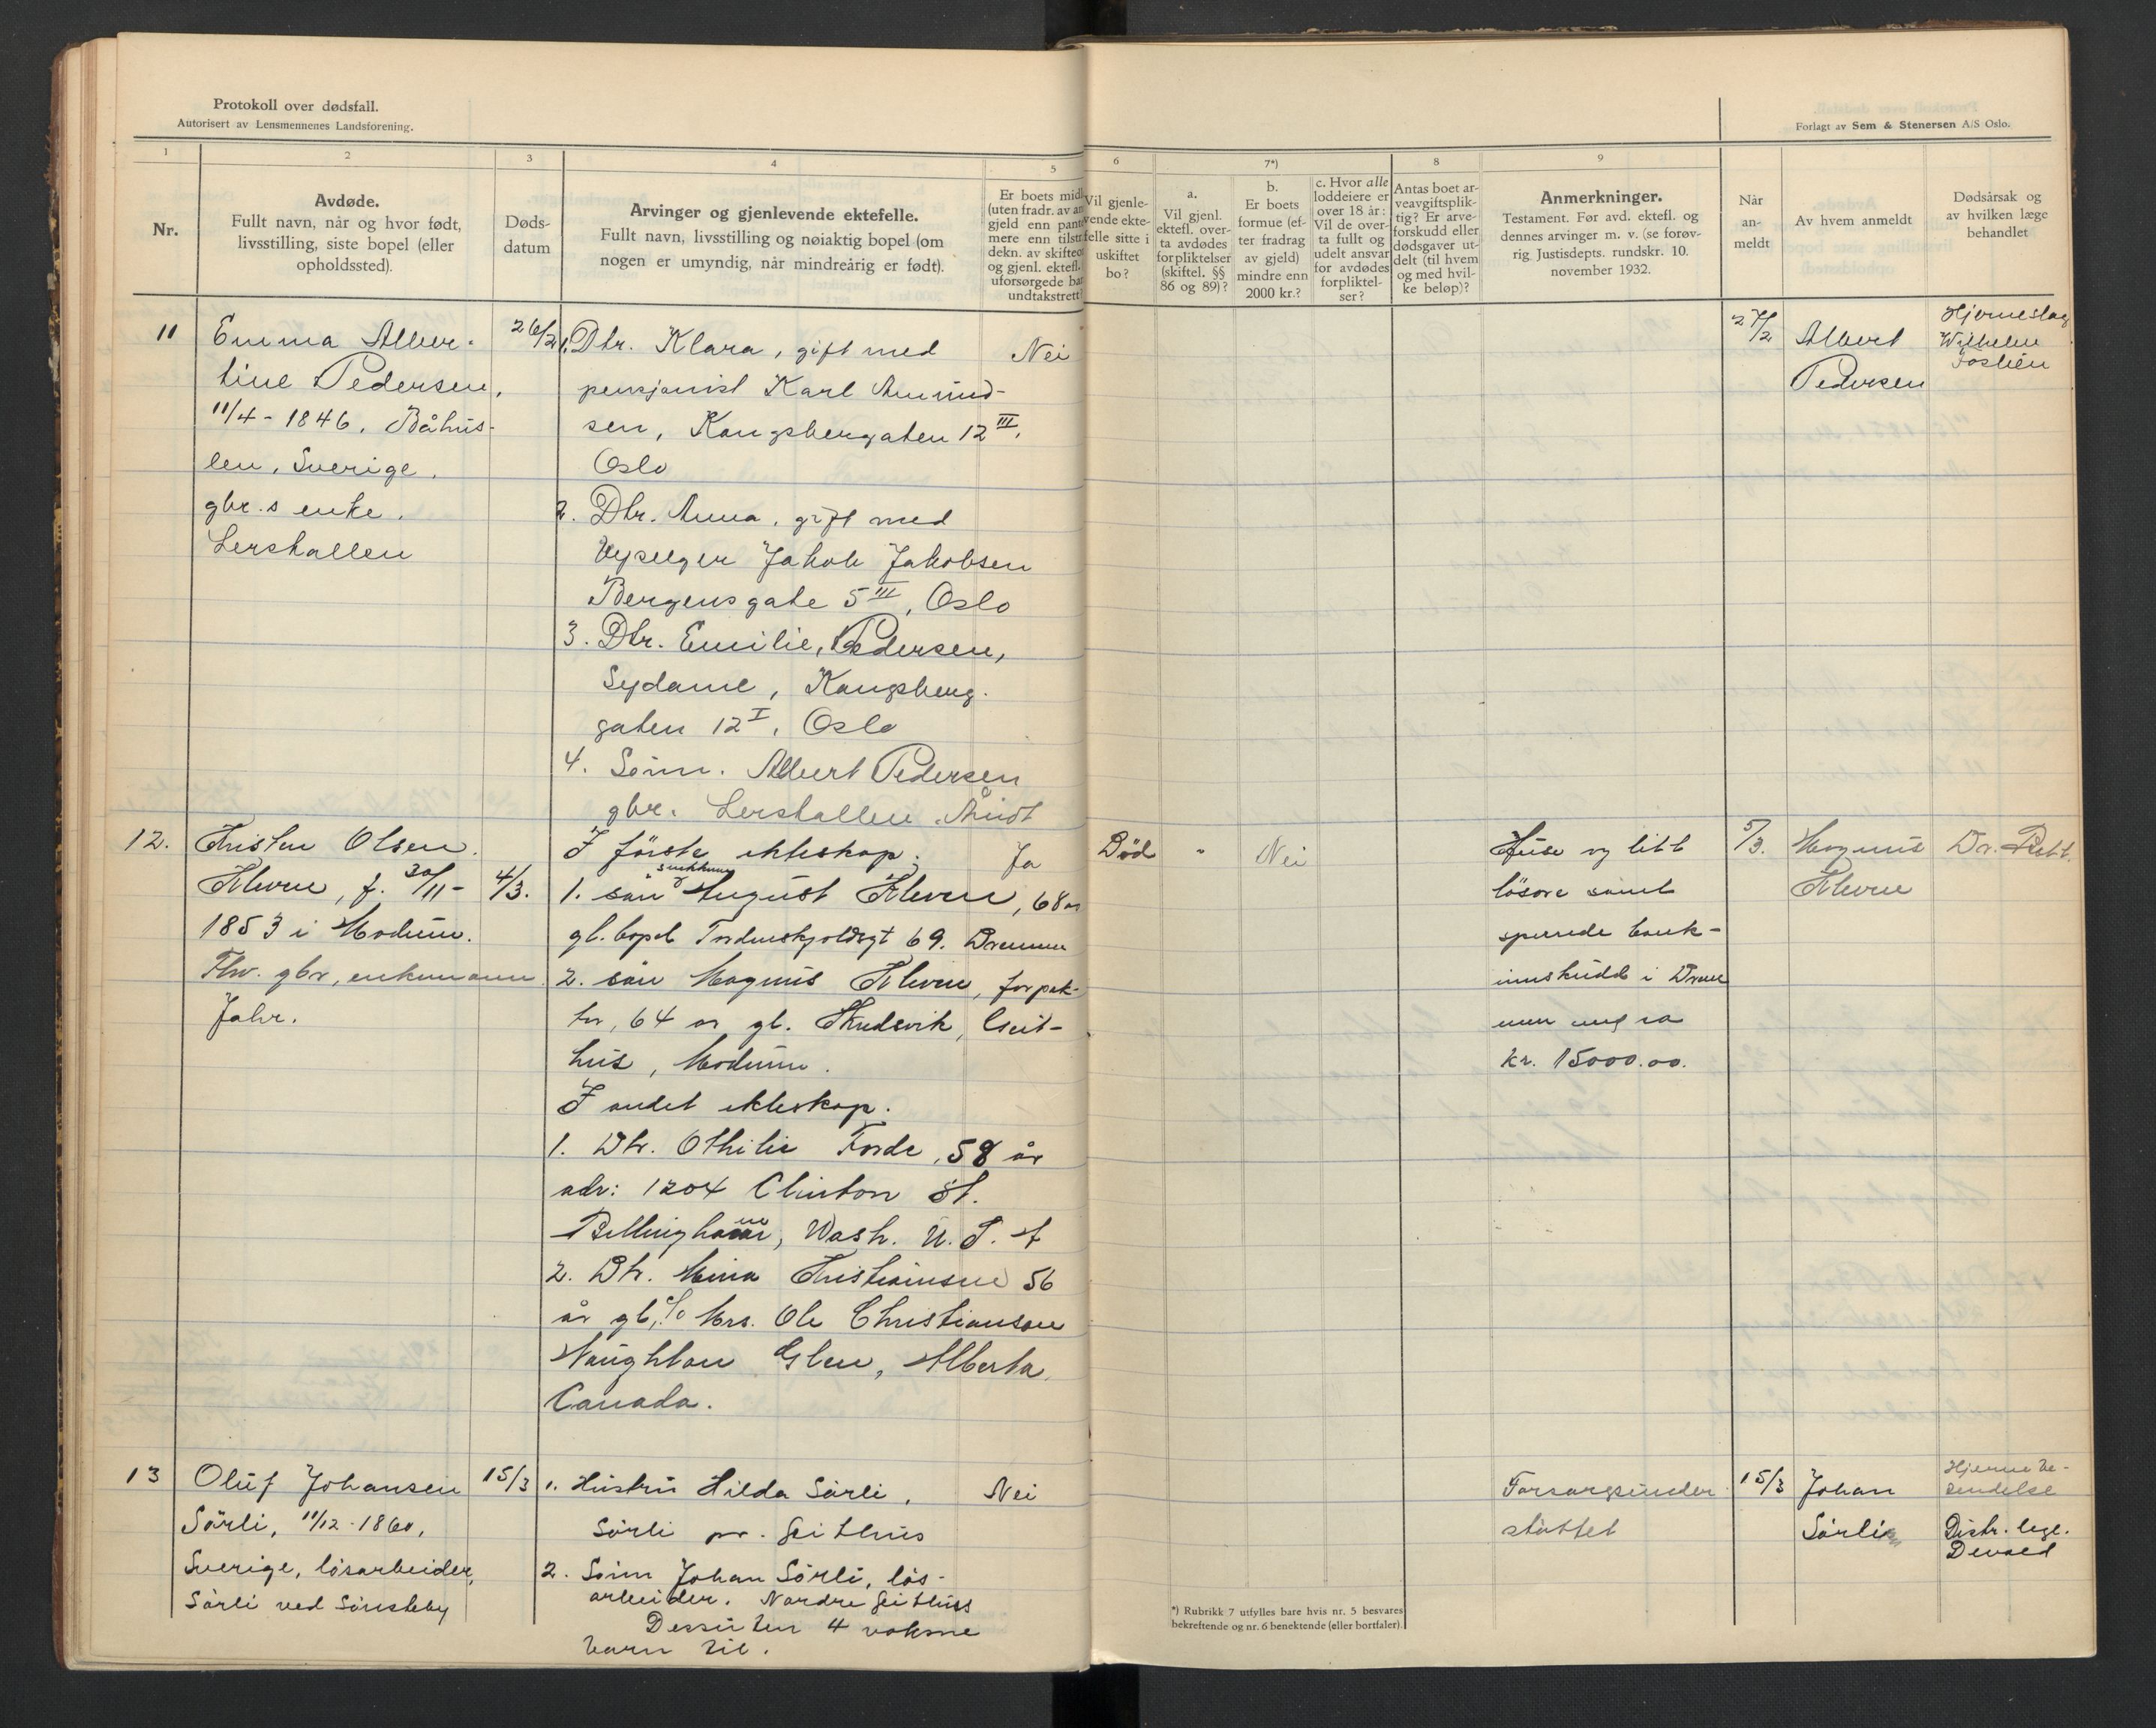 Protokoll over dødsfall.
Autorisert av Lensmennenes Landsforening.
Forlagt av Sem & Stenersen A/S Oslo.
1 2 3 4 5 6 7*) 8 9
Nr.
Avdøde.
Fullt navn, når og hvor født,
livsstilling, siste bopel (eller
opholdssted).
Døds-
datum
Arvinger og gjenlevende ektefelle.
Fullt navn, livsstilling og nøiaktig bopel (om
nogen er umyndig, når mindreårig er født).
Er boets midl
(uten fradr. av an
gjeld enn pant
mere enn tilstr
dekn. av skifteo
og gjenl. ektefl.
uforsørgede bar
undtakstrett?
Vil gjenle-
vende ekte-
felle sitte i
uskiftet
bo?
a.
Vil gjenl.
ektefl. over-
ta avdødes
forpliktelser
(skiftel. §§
86 og 89)?
b.
Er boets
formue (ef-
ter fradrag
av gjeld)
mindre enn
2000 kr.?
c. Hvor alle
loddeiere er
over 18 år:
Vil de over-
ta fullt og
udelt ansvar
for avdødes
forpliktel-
ser?
Antas boet ar-
veavgiftsplik-
tig? Er arve-
forskudd eller
dødsgaver ut-
delt (til hvem
og med hvil-
ke beløp)?
Anmerkninger.
Testament. Før avd. ektefl. og
dennes arvinger m. v. (se forøv-
rig Justisdepts. rundskr. 10.
november 1932.
Når
an-
meldt
Av hvem anmeldt
Dødsårsak og
av hvilken læge
behandlet
11
Emma Alber-
tine Pedersen,
11/4 - 1846. Båhus-
len, Sverige.
gbr.s enke.
Lerskallen
26/2
1. Dtr. Klara, gift med
pensjonist Karl Amund-
sen, Kongsberggaten 12 III,
Oslo
2. Dtr. Anna, gift med
Jakob Jakobsen
Bergensgate 5 III, Oslo
3. Dtr. Emilie, Pedersen,
Sydame, Kongsberg-
gaten 12 I, Oslo
4. Sønn. Albert Pedersen
gbr. Lerskallen. Åmot
Nei
27/2
Albert
Pedersen
Hjerneslag
Wilhelm
12.
Kristen Olsen
Kleven, f. 30/11-
1853 i Modum.
Fhv. gbr, enkemann.
Jahr.
4/3.
I første ekteskap.
1. sån August Kleven, 68 år
gl. bopel Tordenskjoldsgt 69. Drammen
2. sån Magnus Kleven, forpak-
ter, 64 år gl. Geit-
hus, Modum.
I andet ekteskap.
1. Dtr. Othilie Forde, 58 år
adr: 1204 Clinton St.
Bellingham, Wash. U. S. A
2. Dtr. Mina Kristiansen 56
år gl, c/o Mrs. Ole Christianson
Naughton Glen, Alberta,
Canada.
Ja
Död
"
Nei
Huse og litt
løsøre samt
sperrede bank-
innskudd i Dram
men ca
kr. 15000.00.
5/3.
Magnus
Kleven
Dr.
13
Oluf Johansen
Sörli, 11/12 - 1860,
Sverige, lösarbeider,
Sörli ved Sönsteby
15/3
1. Hustru Hilda Sörli,
Sörli pr. Geithus
2. Sönn Johan Sörli, lös-
arbeider. Nordre Geithus
Dessuten 4 voksne
barn til.
Nei
Forsorgsunder-
støttet
15/3
Johan
Sörli
Hjerne be-
Distr. lege.
Devold
*) Rubrikk 7 utfylles bare hvis nr. 5 besvares
bekreftende og nr. 6 benektende (eller bortfaller).